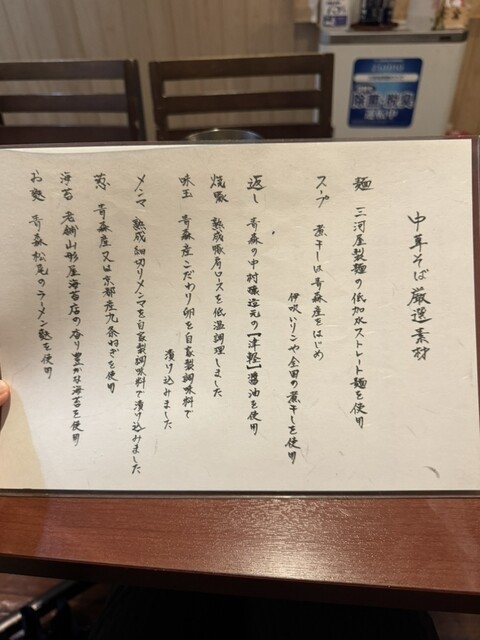 中華そば厳選素材
麺 三河屋製麺の低加水ストレート麺を使用
スープ 煮干しは青森産をはじめ
伊吹いりこや全国の煮干しを使用
返し 青森の中村醸造元の【津軽】醤油を使用
焼豚 熟成豚肩ロースを低温調理しました
味玉 青森産こだわり卵を自家製調味料で
漬け込みました
メンマ 熟成細切りメンマを自家製調味料で漬け込みました
葱 青森産又は京都産九条ねぎを使用
海苔 老舗山形屋海苔店の香り豊かな海苔を使用
お麩 青森松尾のラーメン麩を使用
除菌・脱臭
運転中